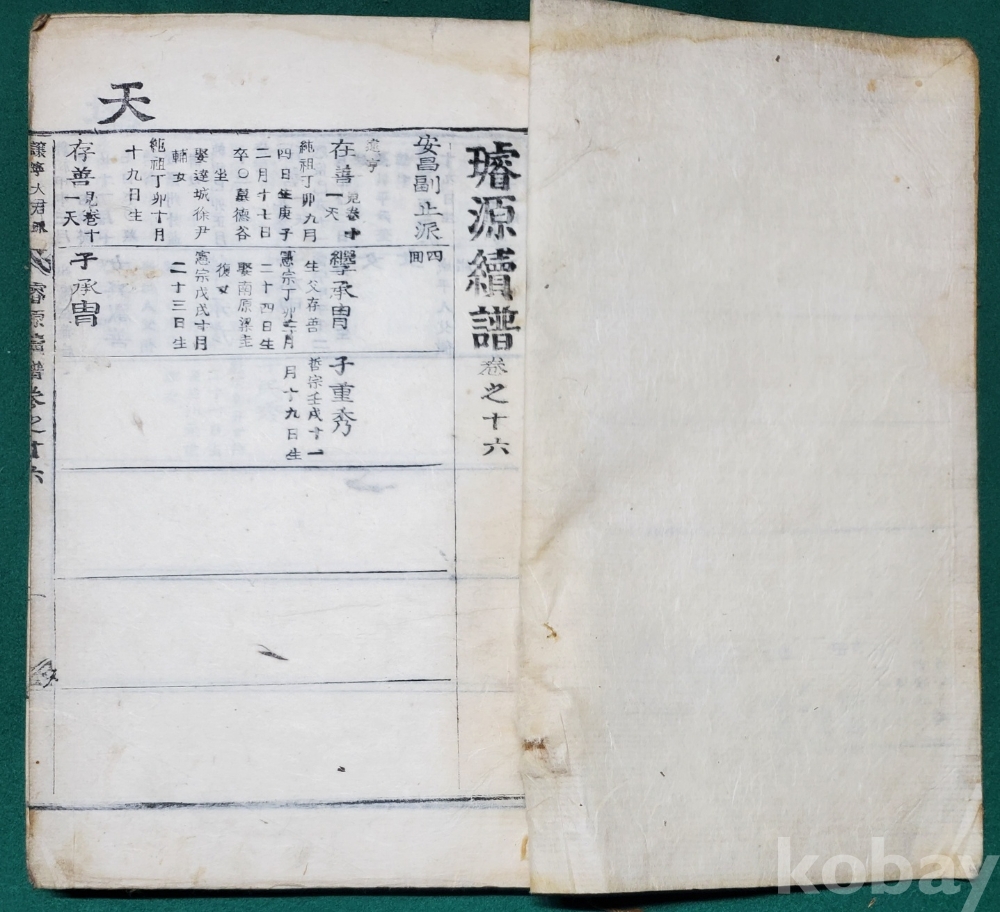 天
璿源續譜 卷之十六
安昌副正派 四面
在善 見卷十一天
純祖丁卯九月
四日生庚子
二月十七日
卒〇墓德谷
坐
娶達城徐尹
輔女
純祖丁卯十月
十九日生
存善 見卷十一天
繫承冑
生父存善二
憲宗丁卯十月
二十四日生
娶南原梁圭
復女
憲宗戊戌十月
二十三日生
子承冑
子重秀
哲宗壬戌十一
月十九日生
讓寧大君派
璿源續譜卷之十六
kobay